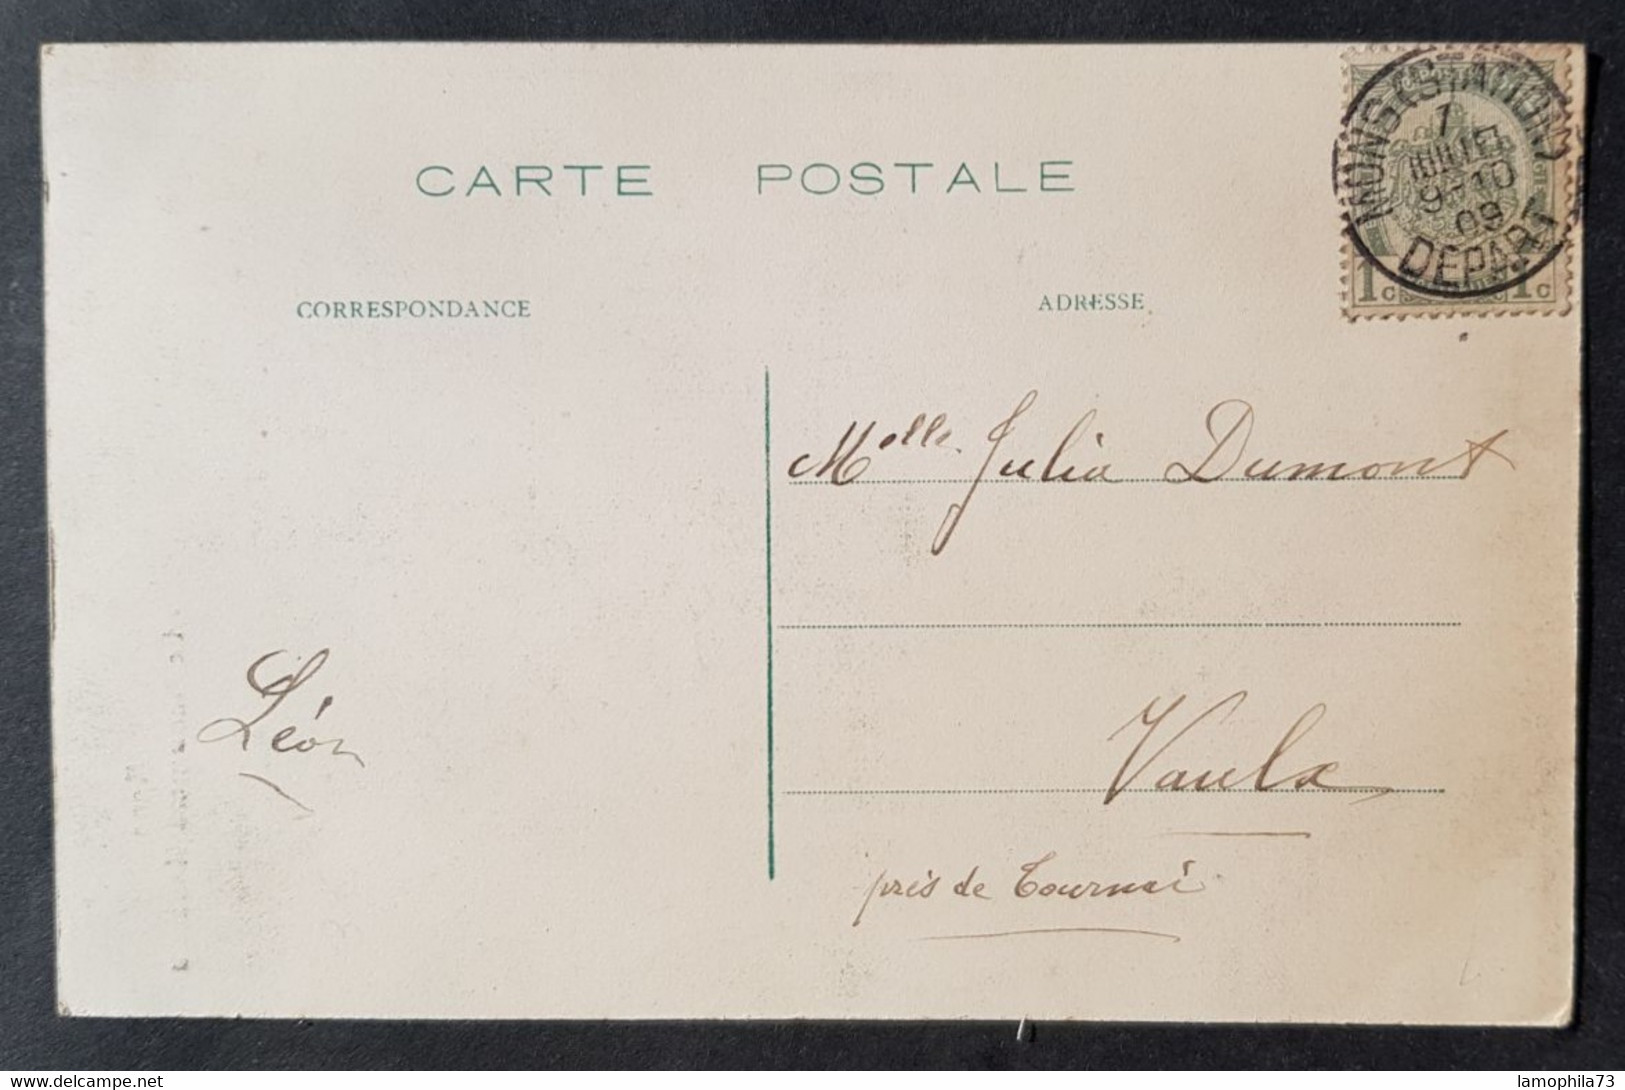 CARTE POSTALE
MONS (STATION)
1
JUILLET
9-10
09
DEPART
1c 1c
CORRESPONDANCE
ADRESSE
Melle Julia Dumont
Léon
Vaulx
près de Tournai
www.delcampe.net
lamophila73